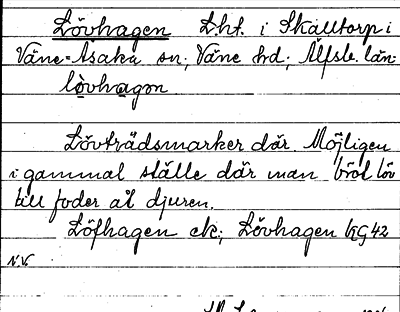 Lövhagen Lht. i Skälltorp i
Väne-Åsaka sn; Väne hd; Älfsb. län
lövhagɘn
Lövträdsmarker där. Möjligen
i gammal ställe där man bröt löv
till foder åt djuren.
Löfhagen ek; Lövhagen KG 42
N.V.